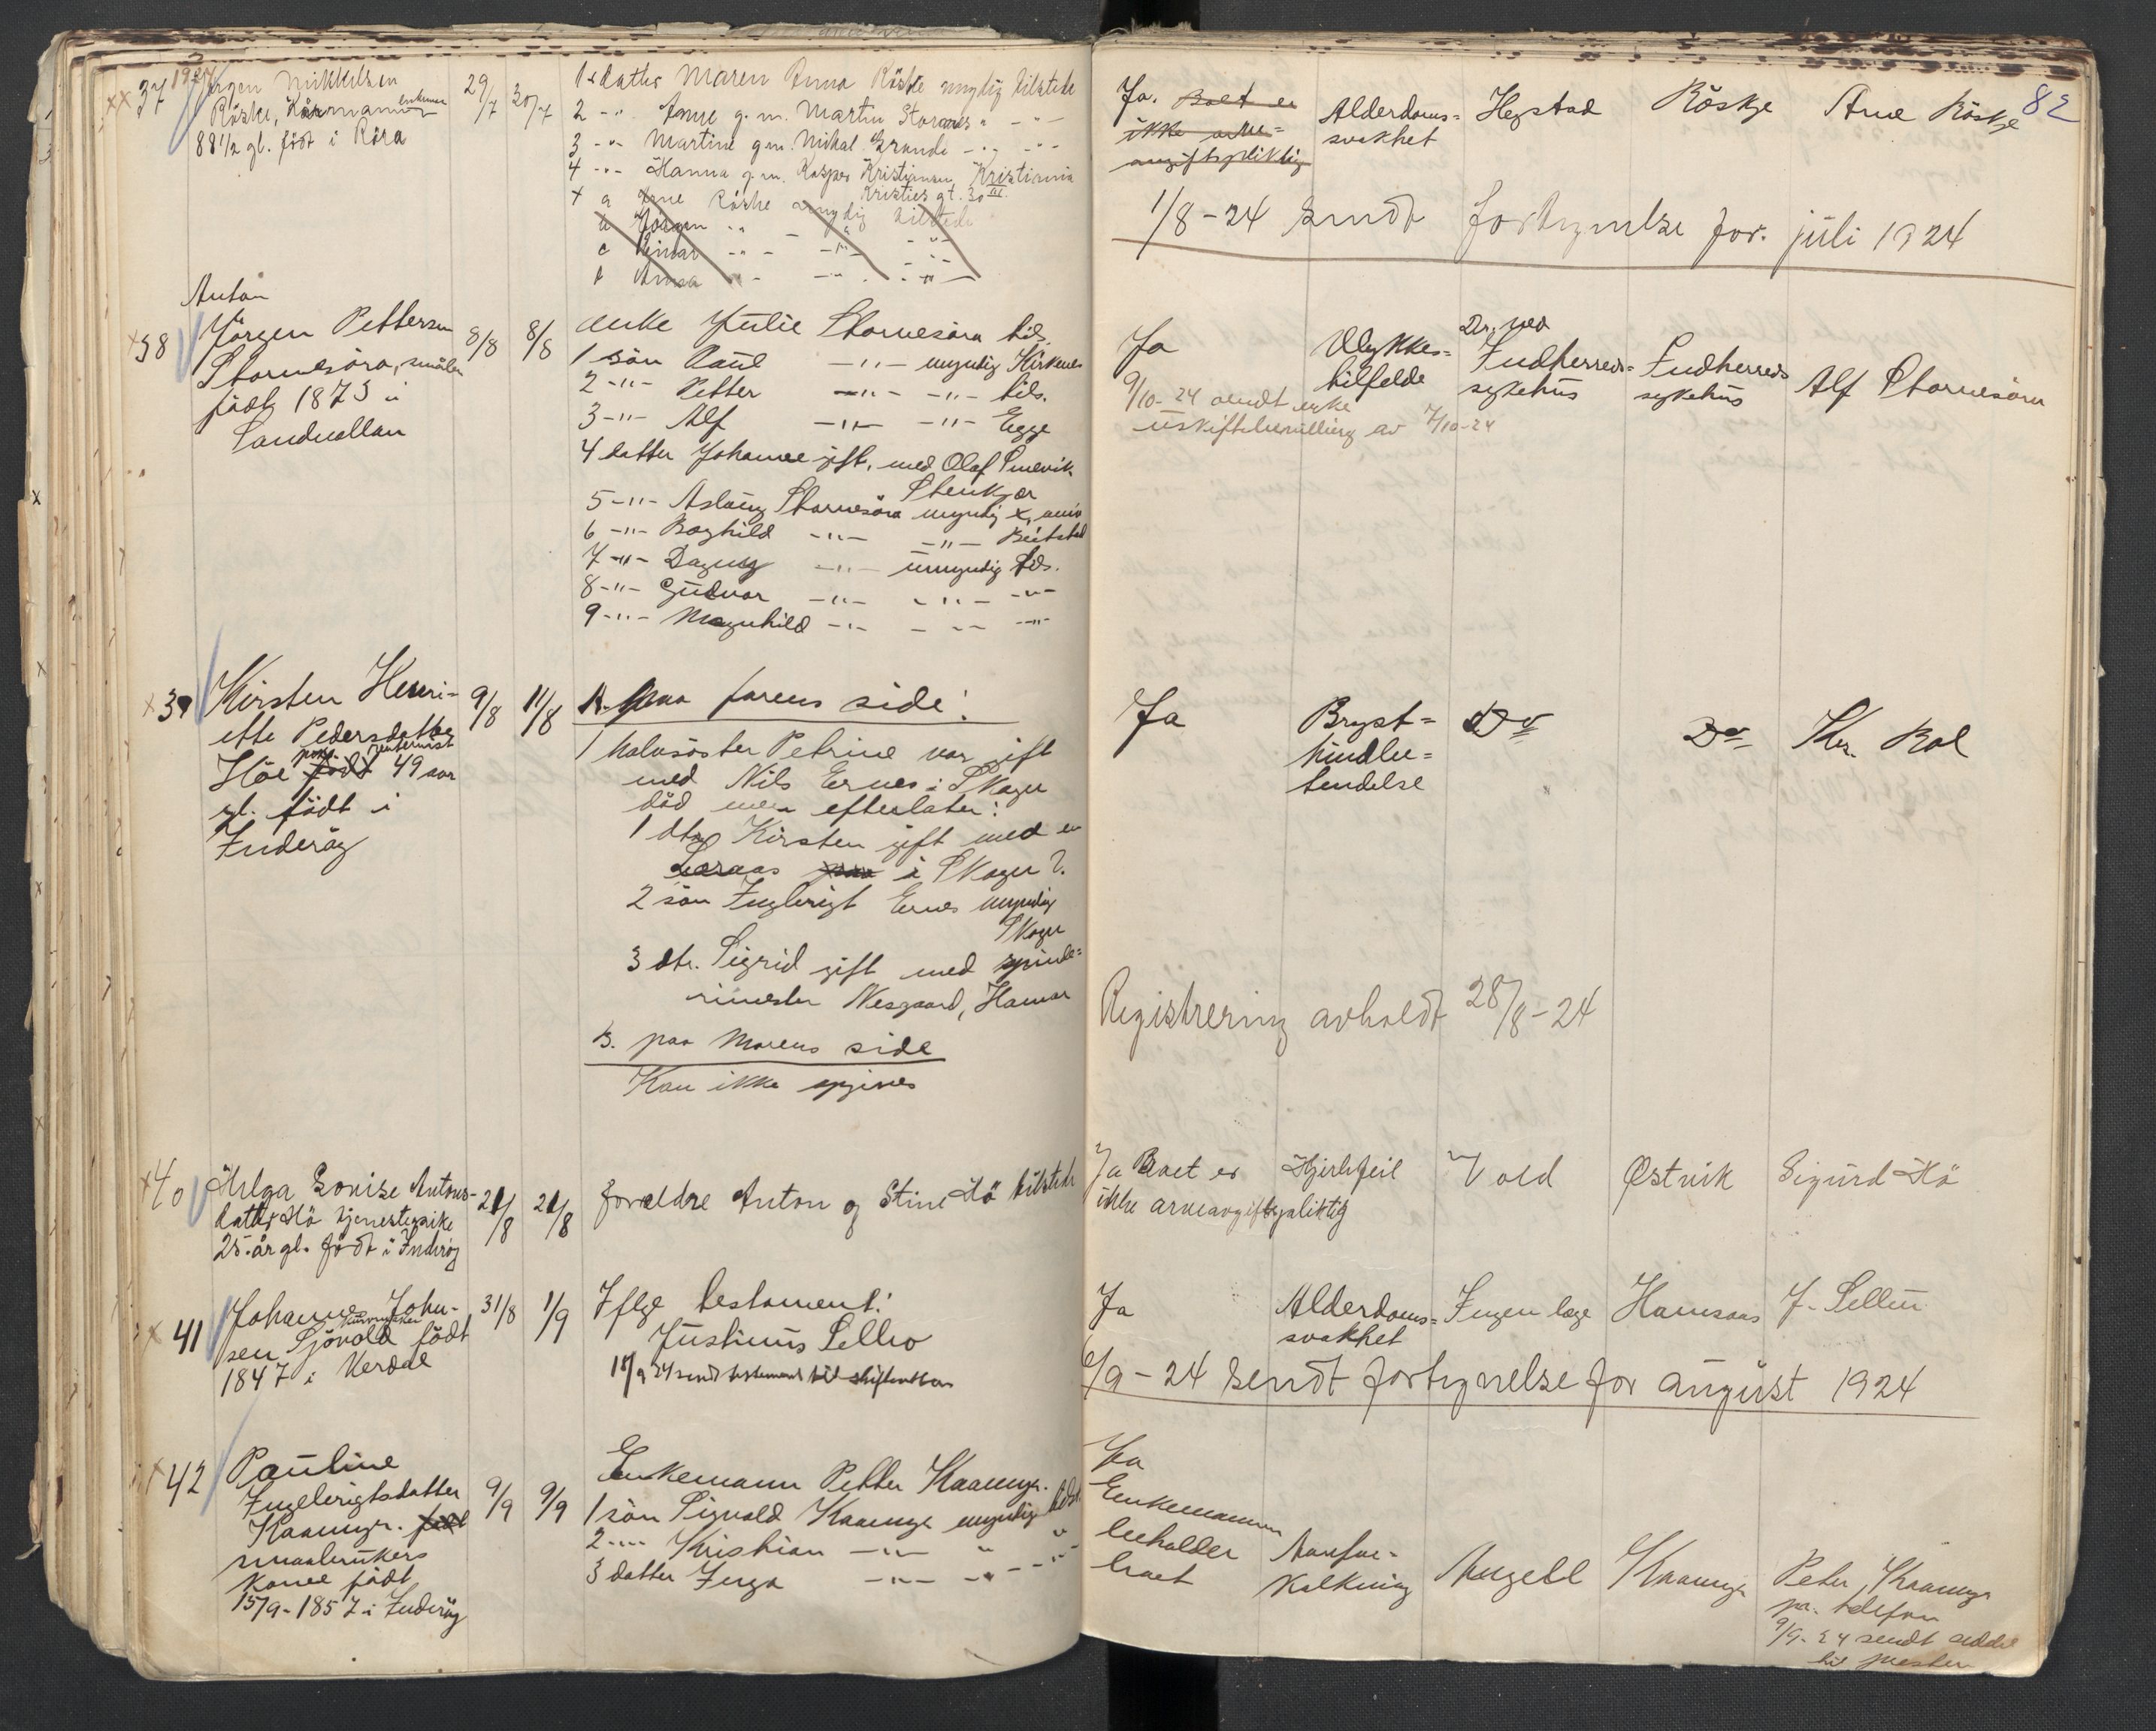 1924
37 Jørgen Mikkelsen
Röske, Kårmann enkeman
88 1/2 gl. födt i Röra
29/7 30/7
1 datter Maren Anna Röske myndig tilstede
2 -"- Anne g. m. Martin Stornes -"-
3 -"- Martine g.m. Mikal Grande -"- -"-
4 -"- Hanna g. m. Kasper Kristiansen, Kristiania
Kristies gt. 30 III
+ a Arne Röske myndig tilstede
b Jörgen -"- -"- -"-
c Einar -"- -"- -"-
d Anna -"- -"- -"-
Ja. Boet er
ikke arve=
avgiftspliktig
Alderdoms=
svakhet
Hegstad
Röskje
Arne Röskje
82
1/8-24 sendt fortegnelse for juli 1924
38 Anton
Jörgen Pettersen
Stornesöra, småbr
födt 1873 i
Sandvollan
8/8 8/8
enke Julie Stornesöra tils.
1 sön Paul -"- myndig Kirkenes
2 -"- Petter -"- -"- tils.
3 -"- Alf -"- -"- Egge
4 datter Johanne gift. med Olaf Smevik
Stenkjær
5 -"- Aslaug Stornesöra myndig
6 -"- Boghild -"- -"- Beitstad
7 -"- Dagny -"- umyndig tils.
8 -"- Gudvor -"- -"- -"-
9 -"- Magnhild -"- -"- -"-
Ja
9/10-24 sendt enke
uskiftebevilling av 7/10-24
Ulykkes=
tilfelde
Dr. ved
Indherreds=
sykehus
Indherreds
sykehus
Alf Stornesöra
39 Kirsten Henri-
ette Pedersdatter
Höe pike rentenist
födt 49 aar
gl. födt i
Inderöy
9/8 11/8
A. Paa farens side:
1 halvsöster Petrine var gift
med Nils Ernes i Skogn
död men efterlater:
1 dtr Kirsten gift med en
Leraas paa i Skogn?
2 sön Inglerigt Ernes myndig
Skogn
3 dtr. Sigrid gift med spinde=
rimester Nesgaard, Hamar
B. paa morens side
Kan ikke opgives
Ja
Bryst=
hindbe=
tendelse
Do
Do
Kr. Bol
Registrering avholdt 28/8-24
40 Helga Lovise Antons-
datter Hö tjenestepike
25 år gl. födt i Inderöy
21/8 21/8
foreldre Anton og Stine Hö tilstede
Ja Boet er
ikke arveavgiftspliktig
Hjertefeil
Vold
Østvik
Sigurd Hö
41 Johannes John-
sen Sjövold födt
1847 i Verdal
31/8 1/9
Iflge testament:
Justinus Selho
18/9 24 sendt testament til skifteretten
Ja
Alderdoms=
svakhet
Ingen læge
Hamsaas
J. Selliu
6/9-24 sendt fortegnelse for august 1924
42 Pauline
Ingebrigtsdatter
Kaamyr. födt
smaabrukers
kone födt
15/9-1857 i Inderöy
9/9 9/9
Enkemann Petter Kaamyr.
1 sön Sigvald Kaamyr myndig tilst.
2 -"- Kristian -"- " "
3 datter Inga -"- -"- -"-
Ja
Enkemannen
beholder
boet
Aarfor-
kalkning
Angell
Kaamyr
Peter Kaamyr
pr. telefon
9/9-24 sendt seddel
til presten